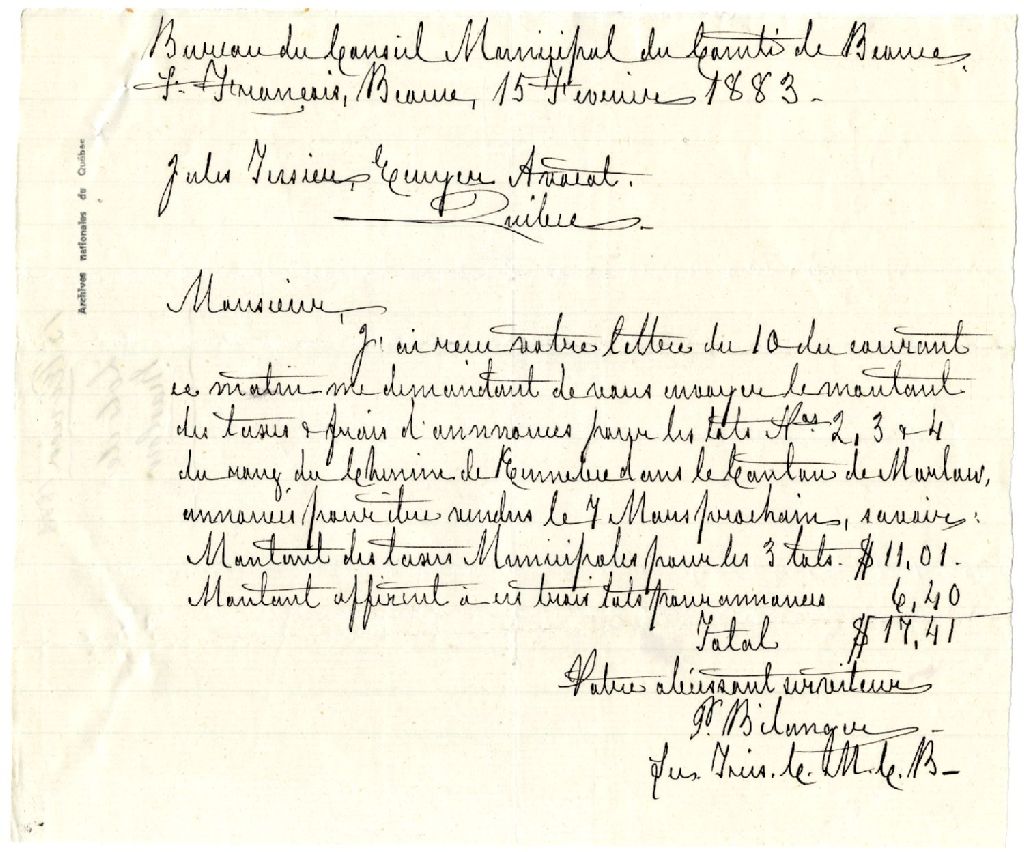 Bureau du Conseil Municipal du Comté de Beauce,
St. François, Beauce, 15 Fevrier 1883.
Jules Tessier, Ecuyer Avocat.
Québec.
Monsieur,
J'ai reçu votre lettre du 10 du courant
ce matin me demandant de vous envoyer le montant
des taxes & frais d'annonces pour les lots Nos 2, 3 & 4
du rang du Chemin de Kennebec dans le Canton de Marlow,
annoncés pour être vendus le 7 Mars prochain, savoir:
Montant des taxes Municipales pour les 3 lots. $ 11,01.
Montant afférent à ces trois lots pour annonces 6,40
Total $ 17,41
Votre obéissant serviteur
Bélanger
Sec. Trés. C. M. C. B
Archives nationales du Québec